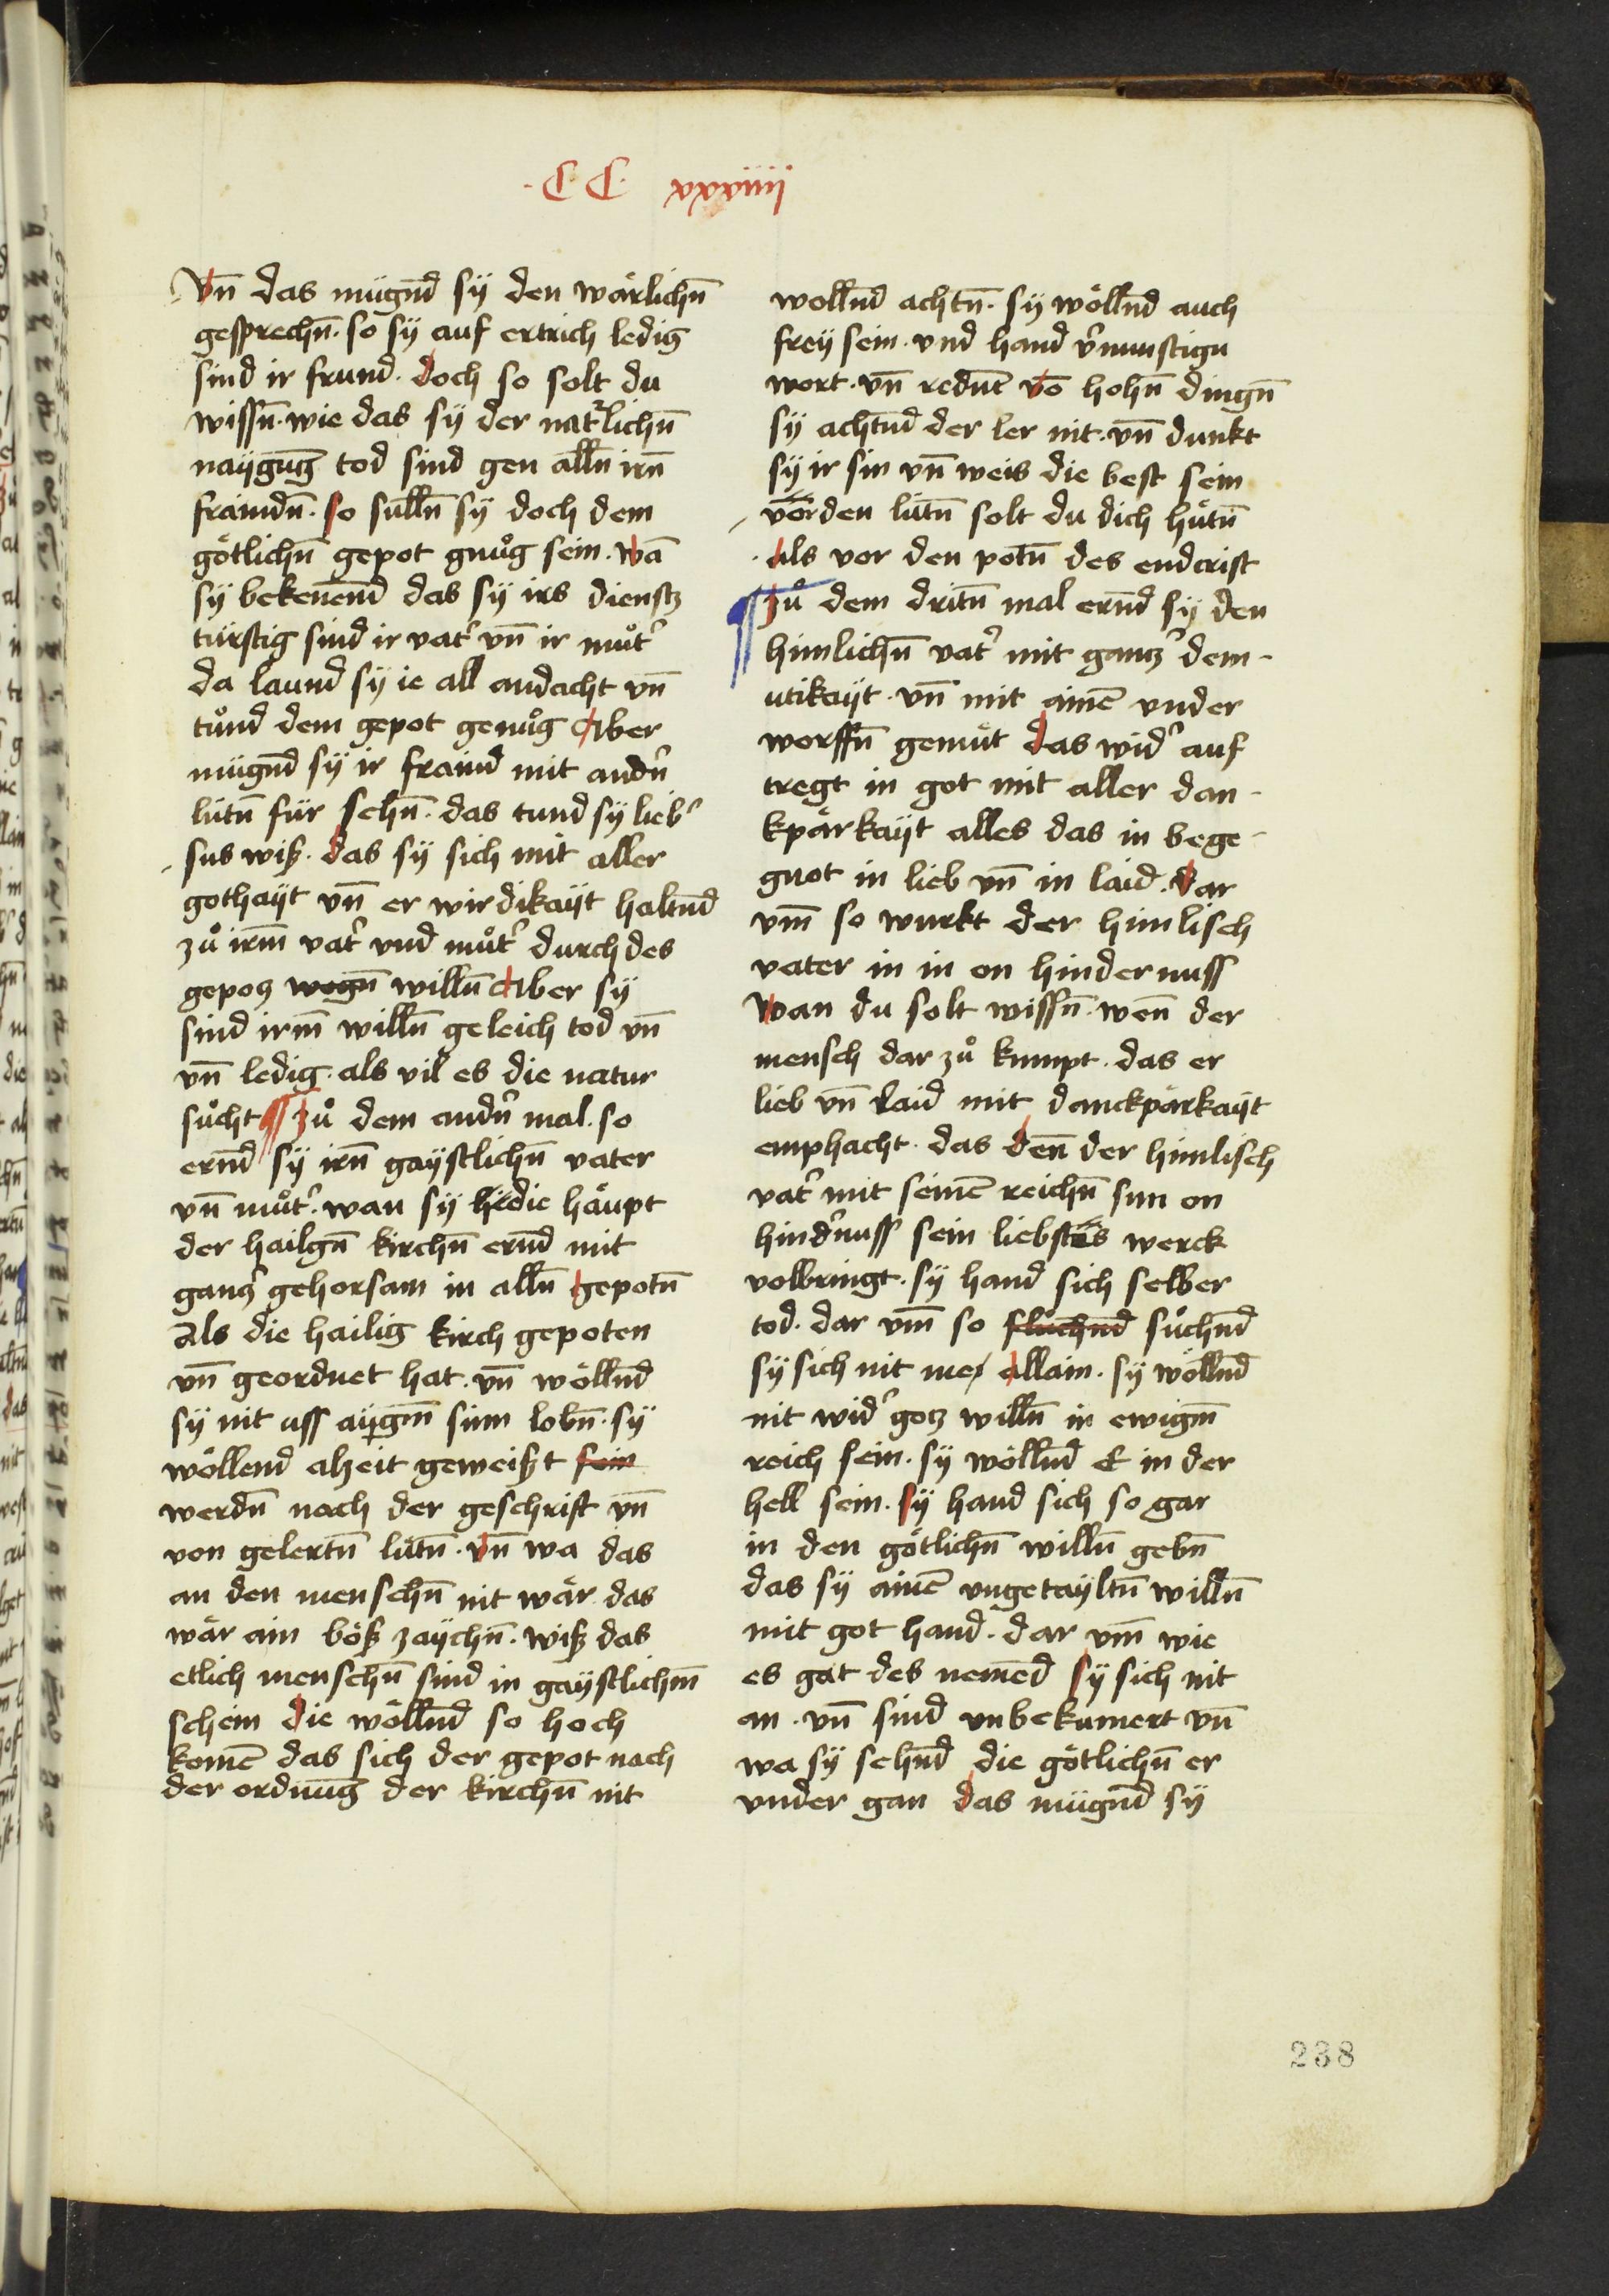 · C C · xxxiiij
Vn̄ das mügnd̄ sÿ den wärlichn̄
gesprechn̄ · so sÿ auf ertrich ledig
sind ir frund · doch so solt du
wissn̄ · wie das sÿ der natᵉlichn̄
naÿgūg tod sind gen alln̄ irn̄
fraindn̄ · so sulln̄ sÿ doch dem
götlichn̄ gepot gnůg sein · wā
sÿ bekenend̄ das sÿ irs dienstz
türftig sind ir vat᾽ vn̄ ir můt᾽
da laund sÿ ie all andacht vn̄
tůnd dem gepot genůg Aber
mügnd̄ sÿ ir fraind mit andn᾽
lütn̄ für sehn̄ · das tund sÿ lieb᾽
sus wiß · das sÿ sich mit aller
gothaÿt vn̄ er wirdikaÿt haltnd̄
zů irm̄ vat᾽ vnd můt᾽ durch des
gepotz wegn̄ willn̄ Aber sÿ
sind irm̄ willn̄ geleich tod vn̄
vn̄ ledig · als vil es die natur
sůcht ¶ Zů dem andn᾽ mal · so
ernd̄ sÿ irn̄ gaÿstlichn̄ vater
vn̄ můt᾽ · wan sÿ die häupt
der hailgn̄ kirchn̄ ernd̄ mit
gantz᾽ gehorsam in alln̄ gepotn̄
Als die hailig kirch gepoten
vn̄ geordnet hat · vn̄ wöllnd̄
sÿ nit uss aÿgm̄ sinn lobn̄ · sÿ
wöllend alzeit geweißt sein
werdn̄ nach der geschrift vn̄
von gelertn̄ lütn̄ · vn̄ wa das
an den menschn̄ nit wär · das
wär ain böß zaÿchn̄ · wiß das
etlich menschn̄ sind in gaÿstlichm̄
schein die wöllnd̄ so hoch
komē das sich der gepot nach
der ordnūg der kirchn̄ nit
wollnd̄ achtn̄ · sÿ wöllnd̄ auch
freÿ sein · vnd hand v᾽nunftign
wort · vn̄ rednt̄ vō hohn̄ dingn̄
sÿ achtnd̄ der ler nit · vn̄ dunkt
sÿ ir sin vn̄ weis die best sein
vor den lütn̄ solt du dich hütn̄
als vor den potn̄ des endcrist
¶ Zů dem dritn̄ mal ernd̄ sÿ den
himlichn̄ vat᾽ mit gantz᾽ dem-
utikaÿt · vn̄ mit ainē vnder
worffn̄ gemüt das wid᾽ auf
tregt in got mit aller dan-
kpärkaÿt alles das in bege-
gnot in lieb vn̄ in laid · dar
vm̄ so wurkt der himlisch
vater in in on hindernuss
Wan du solt wissn̄ · wen̄ der
mensch dar zů kumpt · das er
lieb vn̄ laid mit danckpärkaÿt
emphacht · das den̄ der himlisch
vat᾽ mit seinē reichn̄ sun on
hind᾽nuss sein liebstes werck
volbringt · sÿ hand sich selber
tod · dar vm̄ so fluchnd̄ sůchnd̄
sÿ sich nit me allain · sÿ wöllnd̄
nit wid᾽ gotz willn̄ in ewigm̄
reich sein · sÿ wöllnd̄ E in der
hell sein · sÿ hand sich so gar
in den götlichn̄ willn̄ gebn̄
das sÿ ainē vngetaÿltn̄ willn̄
mit got hand · dar vm̄ wie
es gat des nemēd sÿ sich nit
an · vn̄ sind vnbekumert vn̄
wa sÿ sehnd̄ die götlichn̄ er
vnder gan das mügnd̄ sÿ
238